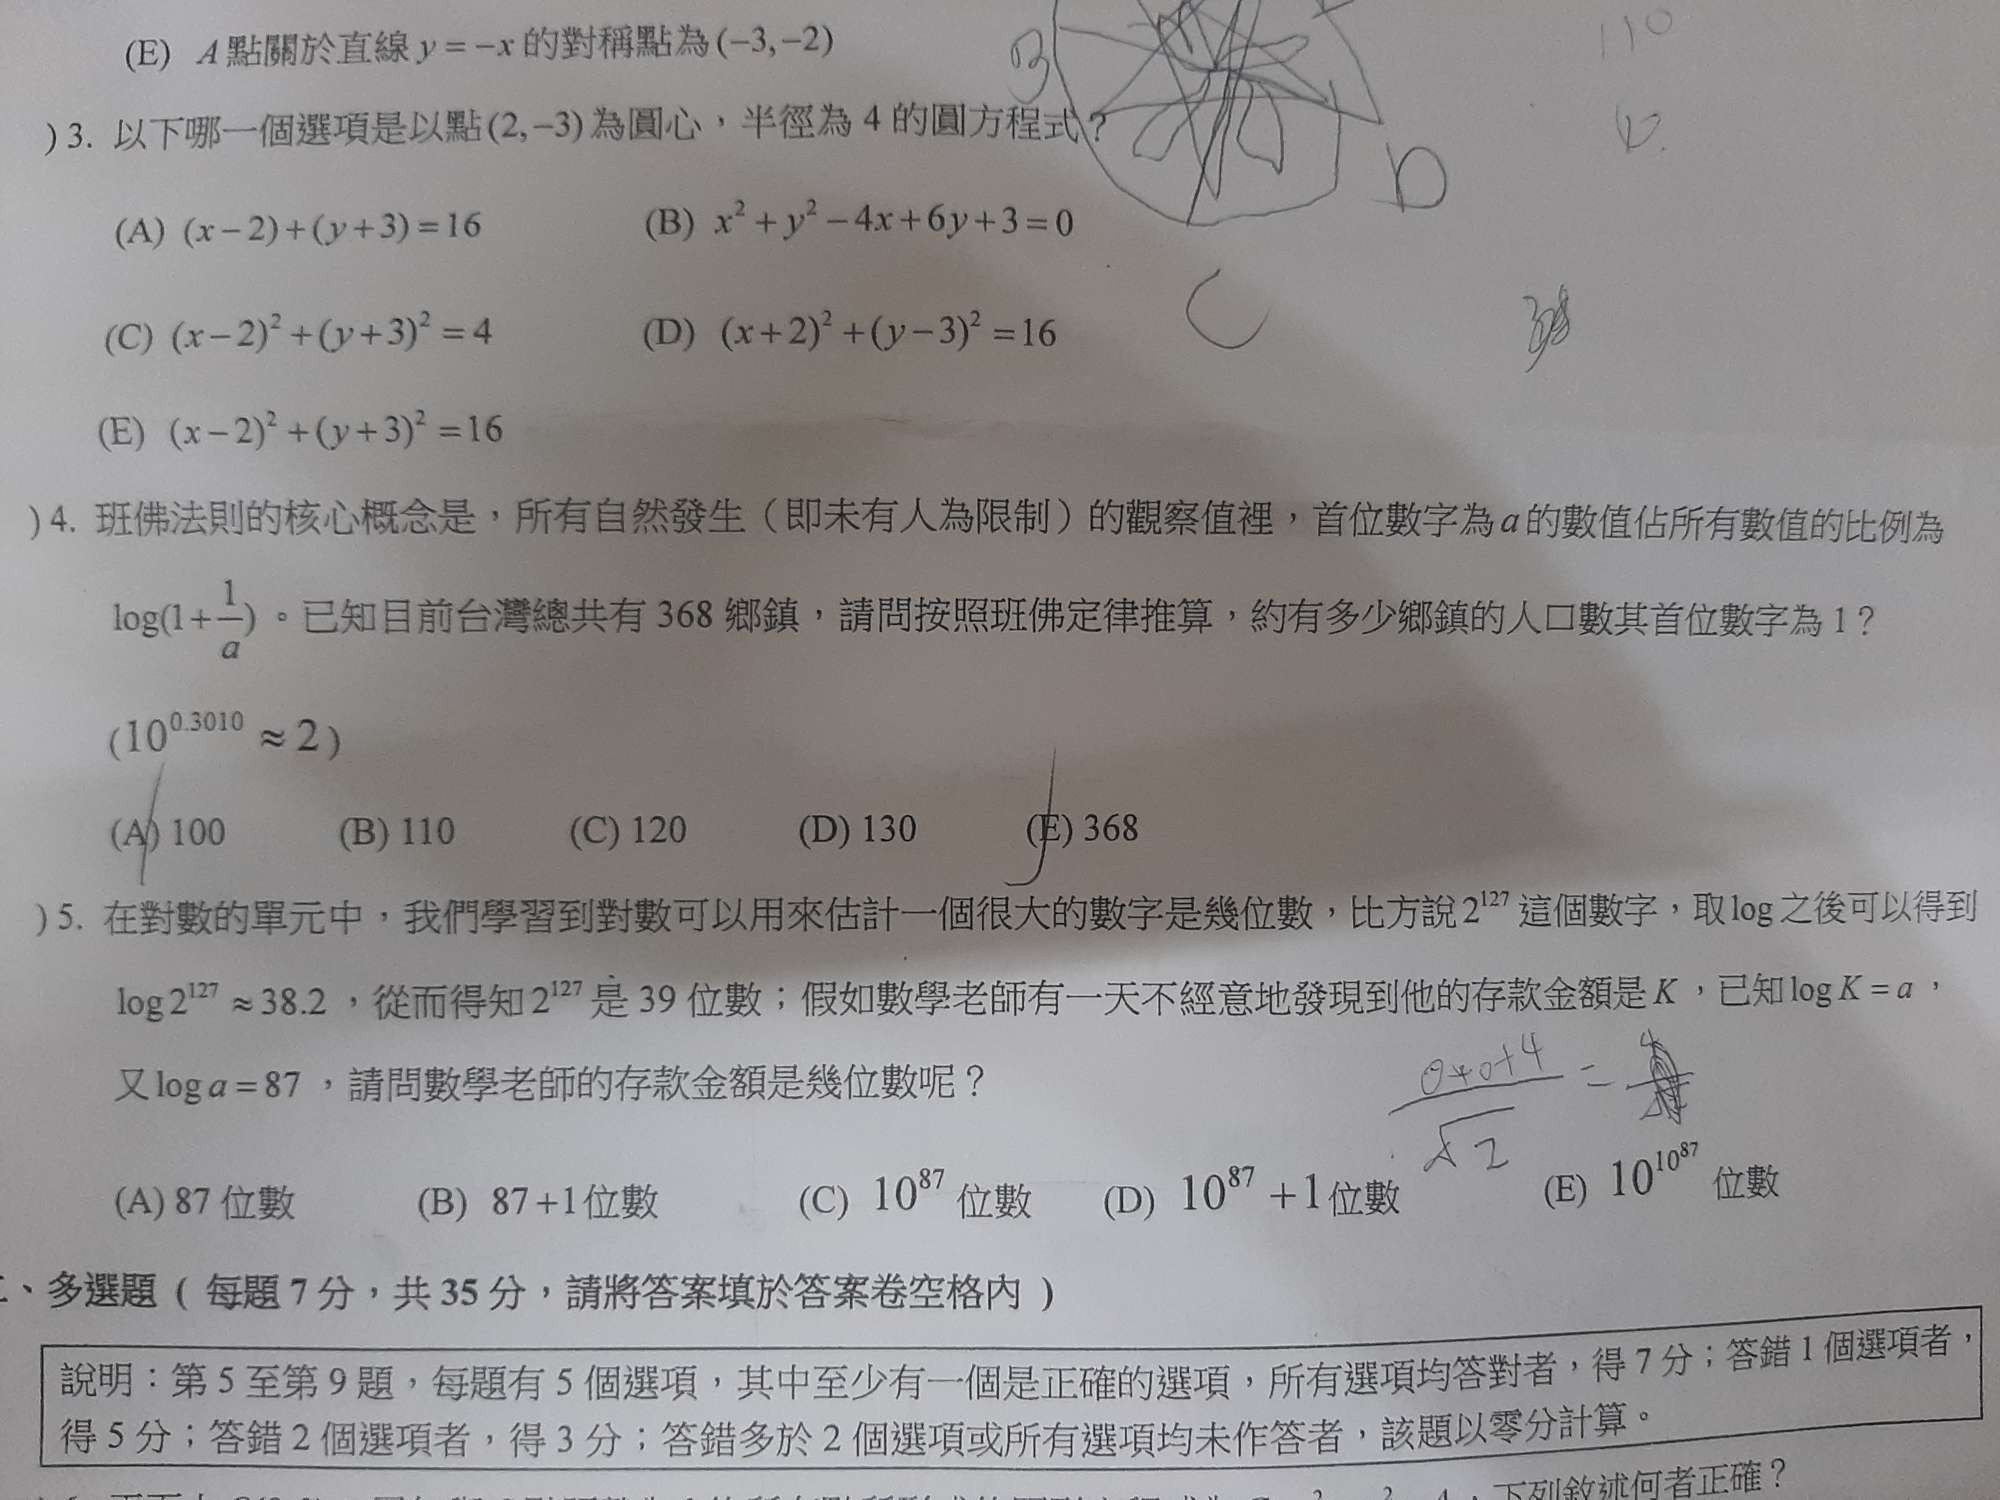 (E) A點關於直線 y = −x 的對稱點為 (−3,−2)
) 3. 以下哪一個選項是以點 (2,−3) 為圓心，半徑為 4 的圓方程式？
(A) (x−2)+(y+3)=16 (B) x²+y²−4x+6y+3=0
(C) (x−2)²+(y+3)²=4 (D) (x+2)²+(y−3)²=16
(E) (x−2)²+(y+3)²=16
) 4. 班佛法則的核心概念是，所有自然發生（即未有人為限制）的觀察值裡，首位數字為 a 的數值佔所有數值的比例為
log(1+1/a)。已知目前台灣總共有 368 鄉鎮，請問按照班佛定律推算，約有多少鄉鎮的人口數其首位數字為 1？
(10^0.3010 ≈ 2)
(A) 100 (B) 110 (C) 120 (D) 130 (E) 368
) 5. 在對數的單元中，我們學習到對數可以用來估計一個很大的數字是幾位數，比方說 2^127 這個數字，取 log 之後可以得到
log 2^127 ≈ 38.2，從而得知 2^127 是 39 位數；假如數學老師有一天不經意地發現到他的存款金額是 K，已知 log K = a，
又 log a = 87，請問數學老師的存款金額是幾位數呢？
(A) 87 位數 (B) 87+1 位數 (C) 10^87 位數 (D) 10^87 +1 位數 (E) 10^10^87 位數
、多選題（每題 7 分，共 35 分，請將答案填於答案卷空格內）
說明：第 5 至第 9 題，每題有 5 個選項，其中至少有一個是正確的選項，所有選項均答對者，得 7 分；答錯 1 個選項者，
得 5 分；答錯 2 個選項者，得 3 分；答錯多於 2 個選項或所有選項均未作答者，該題以零分計算。
下列敘述何者正確？
B
D
C
110
0+0+4
√2
=